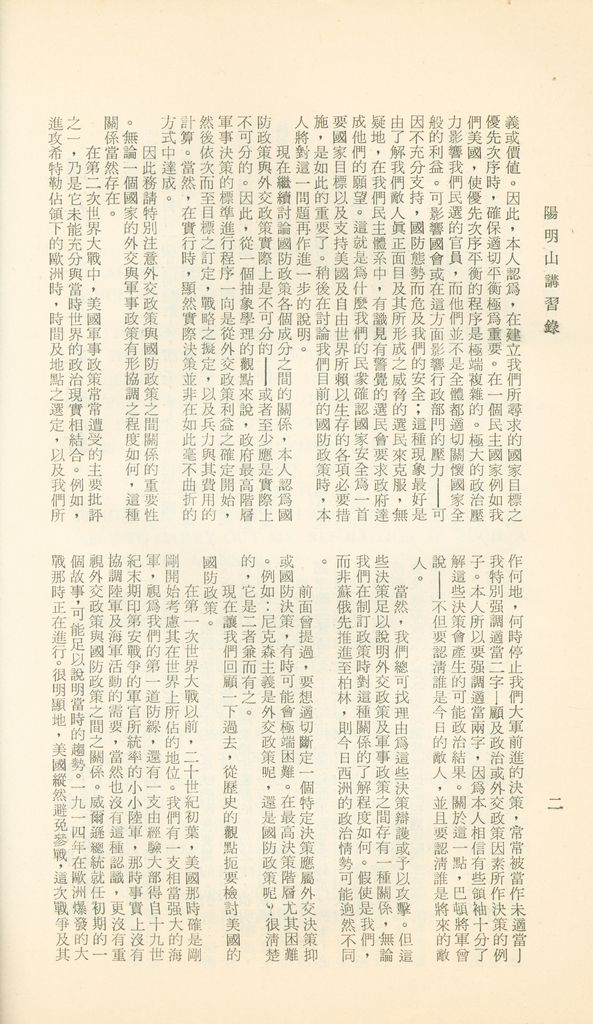 陽明山講習錄
二
義或價値。因此，本人認爲，在建立我們所尋求的國家目標之
優先次序時，確保適切平衡極爲重要。在一個民主國家例如我
們美國，使優先次序平衡的程序是極端複雜的。極大的政治壓
力影響我們民選的官員，而他們並不是全體都適切關懷國家全
般的利益。可影響國會或在這方面影響行政部門的壓力——可
因不充分支持，國防態勢而危及我們的安全；這種現象最好是
由了解我們敵人眞正面目及其所形成之威脅的選民來克服，無
疑地，在我們民主體系中，有識見有警覺的選民會要求政府達
成他們的願望。這就是爲什麼我們的民衆確認國家安全爲一首
要國家目標以及支持美國及自由世界所賴以生存的各項必要措
施，是如此的重要了。稍後在討論我們目前的國防政策時，本
人將對這一問題再作進一步的說明。
現在繼續討論國防政策各個成分之間的關係，本人認爲國
防政策與外交政策實際上是不可分的——或者至少應是實際上
不可分的。因此，從一個抽象學理的觀點來說，政府最高階層
軍事決策的標準進行程序一向是從外交政策利益之確定開始，
然後依次而至目標之訂定，戰略之擬定，以及兵力與其費用的
計算。當然，在實行時，顯然實際決策並非在如此毫不曲折的
方式中達成。
因此務請特別注意外交政策與國防政策之間關係的重要性
。無論一個國家的外交與軍事政策有形協調之程度如何，這種
關係當然存在。
在第二次世界大戰中，美國軍事政策常常遭受的主要批評
之一，乃是它未能充分與當時世界的政治現實相結合。例如，
進攻希特勒佔領下的歐洲時，時間及地點之選定，以及我們所
作何地，何時停止我們大軍前進的決策，常常被當作未適當—
我特別强調適當二字—顧及政治或外交政策因素所作決策的例
子。本人所以要强調適當兩字，因爲本人相信有些領袖十分了
解這些決策會產生的可能政治結果。關於這一點，巴頓將軍曾
說——不但要認淸誰是今日的敵人，並且要認淸誰是將來的敵
人。
當然，我們總可找理由爲這些決策辯護或予以攻擊。但這
些決策足以說明外交政策及軍事政策之間存有一種關係，無論
我們在制訂政策時對這種關係的了解程度如何。假使是我們，
而非蘇俄先推進至柏林，則今日西洲的政治情勢可能逈然不同
。
前面曾提過，要想適切斷定一個特定決策應屬外交決策抑
或國防決策，有時可能會極端困難。在最高決策階層尤其困難
。例如：尼克森主義是外交政策呢，還是國防政策呢？很淸楚
的，它是二者兼而有之。
現在讓我們回顧一下過去，從歷史的觀點扼要檢討美國的
國防政策。
在第一次世界大戰以前，二十世紀初葉，美國那時確是剛
剛開始考慮其在世界上所佔的地位。我們有一支相當强大的海
軍，視爲我們的第一道防線，還有一支由經驗大部得自十九世
紀末期印第安戰爭的軍官所統率的小小陸軍，那時事實上沒有
協調陸軍及海軍活動的需要，當然也沒有這種認識，更沒有重
視外交政策與國防政策之間之關係。威爾遜總統就任初期的一
個故事，可能足以說明當時的趨勢。一九一四年在歐洲爆發的大
戰那時正在進行。很明顯地，美國縱然避免參戰，這次戰爭及其